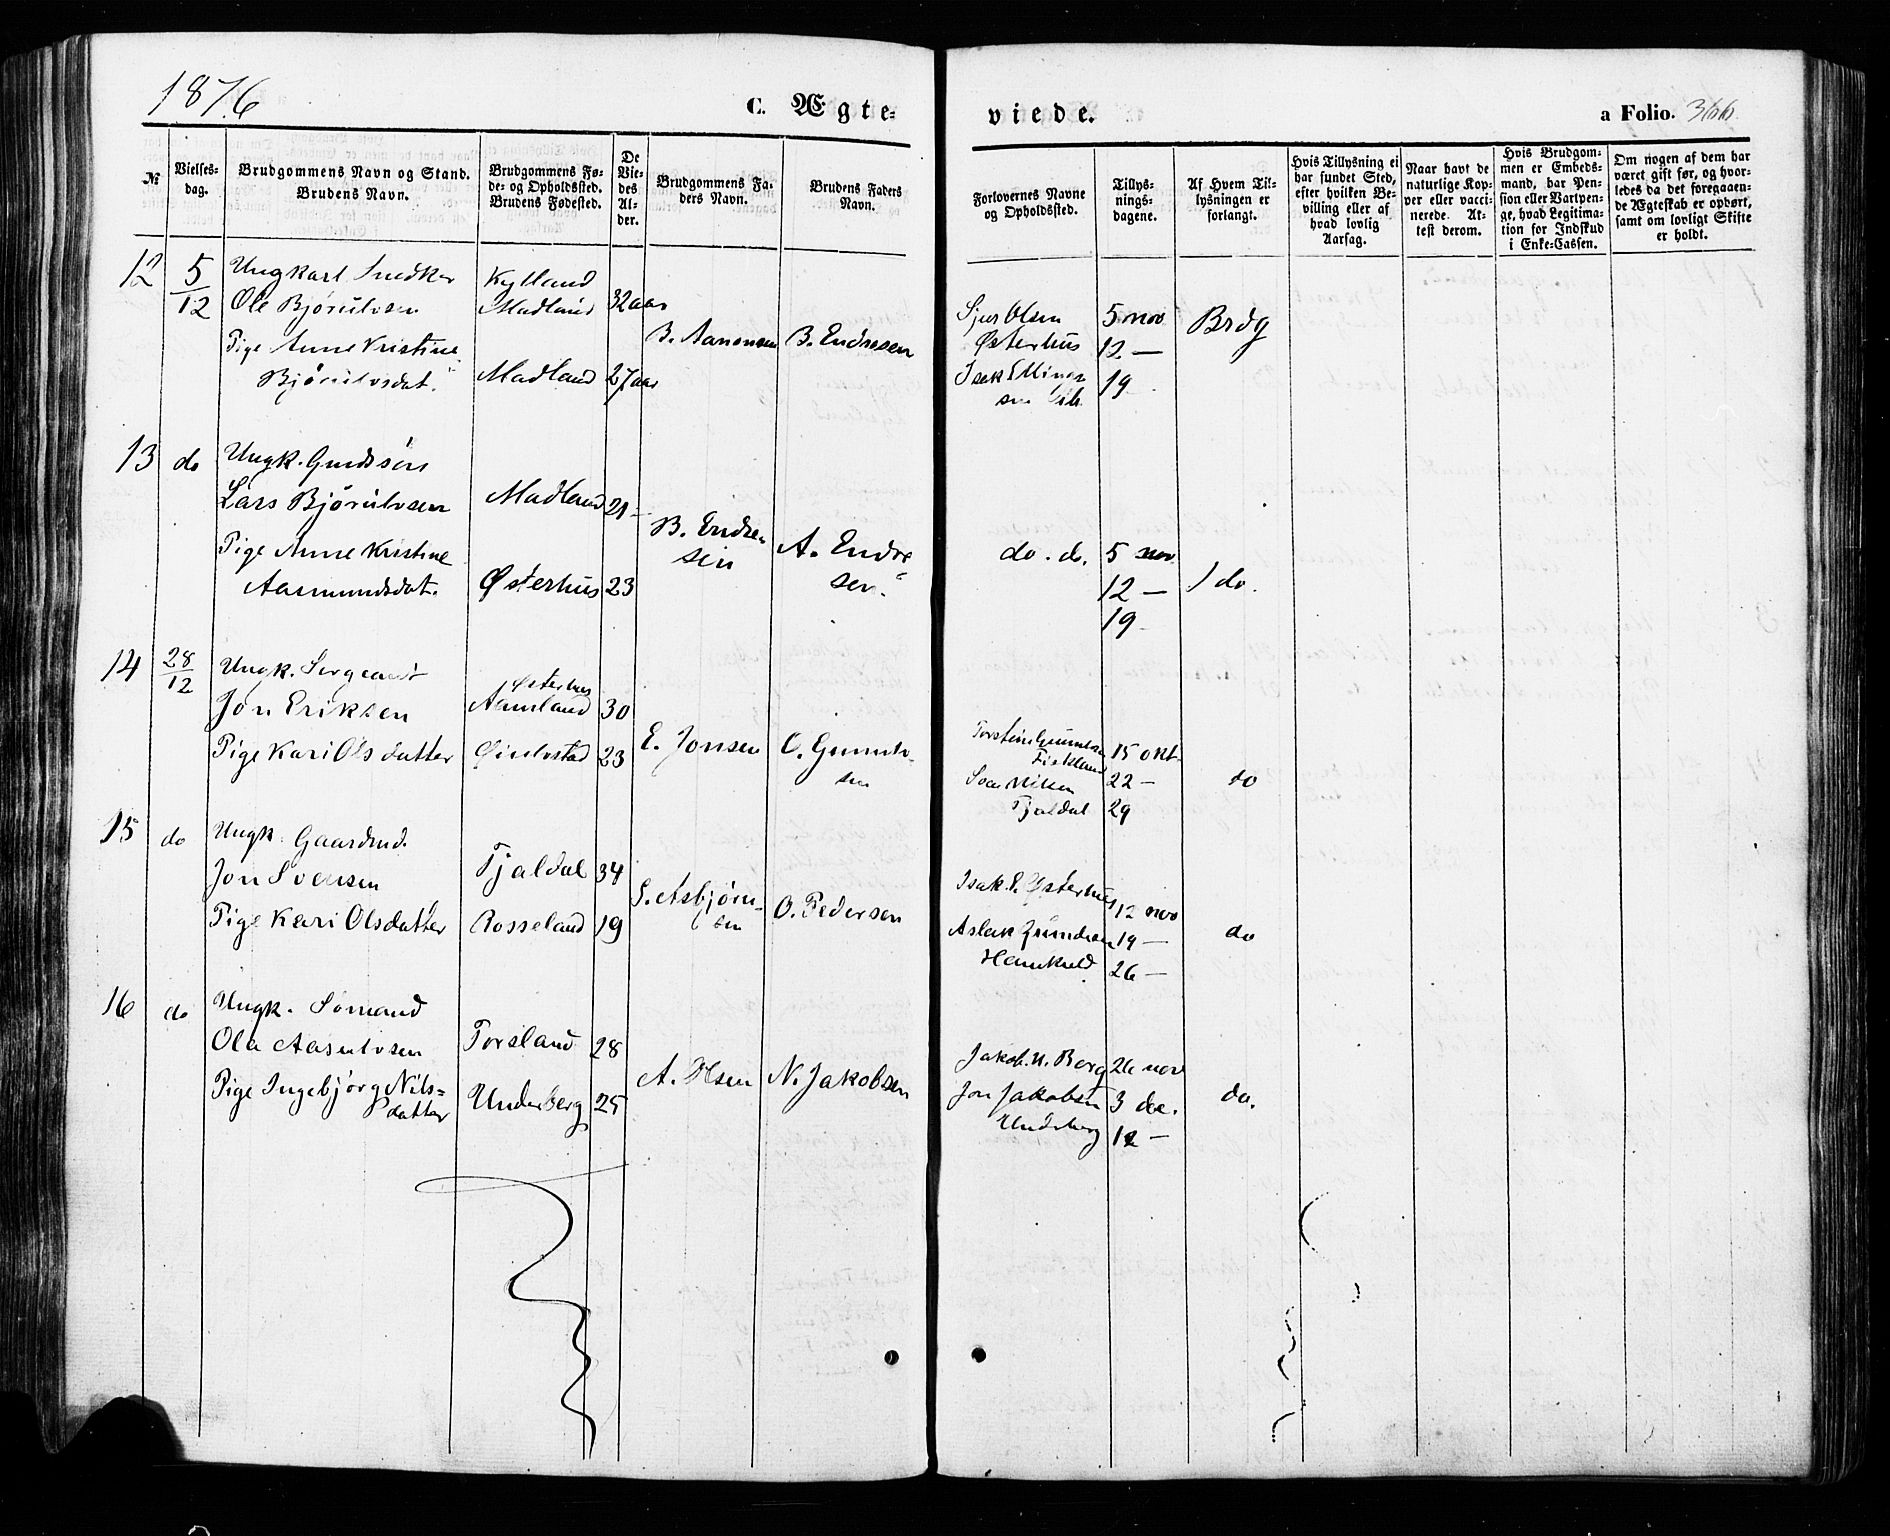 1876
C. Ægte-
viede.
a Folio. 366.
№
Vielses-
dag.
Brudgommens Navn og Stand.
Brudens Navn.
Brudgommens Fø-
de- og Opholdssted.
Brudens Fødested.
De
Vie-
des
Al-
der.
Brudgommens Fa-
ders Navn.
Brudens Faders
Navn.
Forlovernes Navne
og Opholdssted.
Tillys-
nings-
dagene.
Af Hvem Til-
lysningen er
forlangt.
Hvis Tillysning ei
har fundet Sted,
efter hvilken Be-
villing eller af
hvad lovlig
Aarsag.
Naar havt de
naturlige Kop-
per eller vacci-
nerede. At-
test derom.
Hvis Brudgom-
men er Embeds-
mand, har Pen-
sion eller Vartpen-
ge, hvad Legitima-
tion for Indskud
i Enke-Cassen.
Om nogen af dem har
været gift før, og hvor-
ledes da det foregaaen-
de Ægteskab er ophørt,
samt om lovligt Skifte
er holdt.
12 5/12 Ungkarl Snedker Kylland
Ole Bjørulvsen Madland 32 aar
Pige Anne Kristine
Bjørulvsdat. Madland 27 aar
B. Aanonsen B. Endresen
Sjur Olsen 5 nov Brdg
Østerhus 12 —
Isak Elling- 19
sen ib.
13 do Ungk. Grdsøn
Lars Bjørulvsen Madland 21 —
Pige Anne Kristine
Aasmundsdat. Østerhus 23
B. Endre
sen
A. Endre
sen.
do. d. 5 nov
12 — do.
19 —
14 28/12 Ungk. Sergeant Østerhus
Jon Eriksen Aamland 30
Pige Kari Olsdatter 23
E. Jonsen O. Gunulv-
sen
Torstein 15 okt.
Fiskland
22 — do
Tjaldal 29
15 do Ungk. Gaardmd.
Jon Svensen Tjaldal 34
Pige Kari Olsdatter Rosseland 19
S. Asbjørn-
sen
O. Pedersen
Isak E. Østerhus 12 nov
Aslak 19 — do
26 —
16 do Ungk. Sømand
Ola Aasulvsen Torsland 28
Pige Ingebjørg Nils-
datter Underberg 25
A. Olsen N. Jakobsen
Jakob. N. Berg 26 nov
Jon Jakobsen 3 de. do.
Underberg 12 —